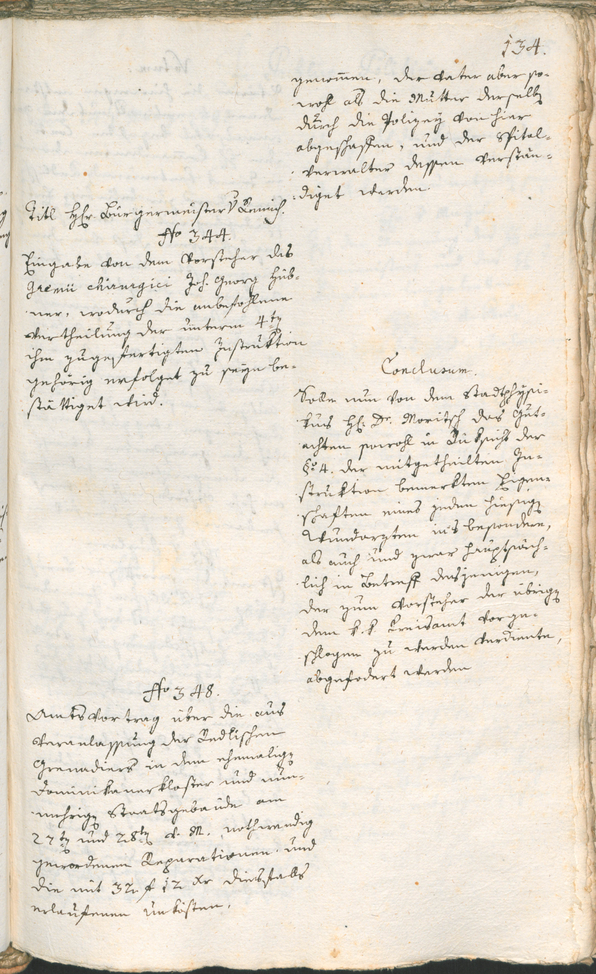 134.
genommen, der Vater aber so-
wohl als die Mutter derselbẽ
durch die Polizey von hier
abgeschaffen, und der Spital-
verwalter dessen verstän-
diget werden.
Titl Hr. Bürgermeister v
No 344.
Eingabe von dem Vorsteher des
Gremii chirurgici Joh. Georg Hüb-
ner, wodurch die anbefohlene
Vertheilung der unterm 4tẽ
ihm zugefertigten Instruktion
gehörig erfolget zu seyn be-
stättiget wird.
Conclusum.
Solle nun von dem Stadtphysi-
kus Hr. Dr. Moritsch das Gut-
achten sowohl in Rücksicht der
§o 4. der mitgetheilten In-
struktion bemerkten Eigen-
schaften eines jeden hiesigẽ
Wundarzten ins besondere,
als auch und zwar hauptsäch-
lich in Betreff desjenigen,
der zum Vorsteher der übrigẽ
dem k. k. Kreisamt vorge-
schlagen zu werden verdiente,
abgefodert werden
No 348.
Amtsvortrag über die aus
Veranlassung der
Grenadiers in dem ehemaligẽ
Dominikanerkloster und nun-
mehrigẽ Staatsgebäude am
27tẽ und 28tẽ d. M. nothwendig
gewordenen Reparationen und
die mit 32 f 12 xr diesfalls
erlaufenen Unkösten.